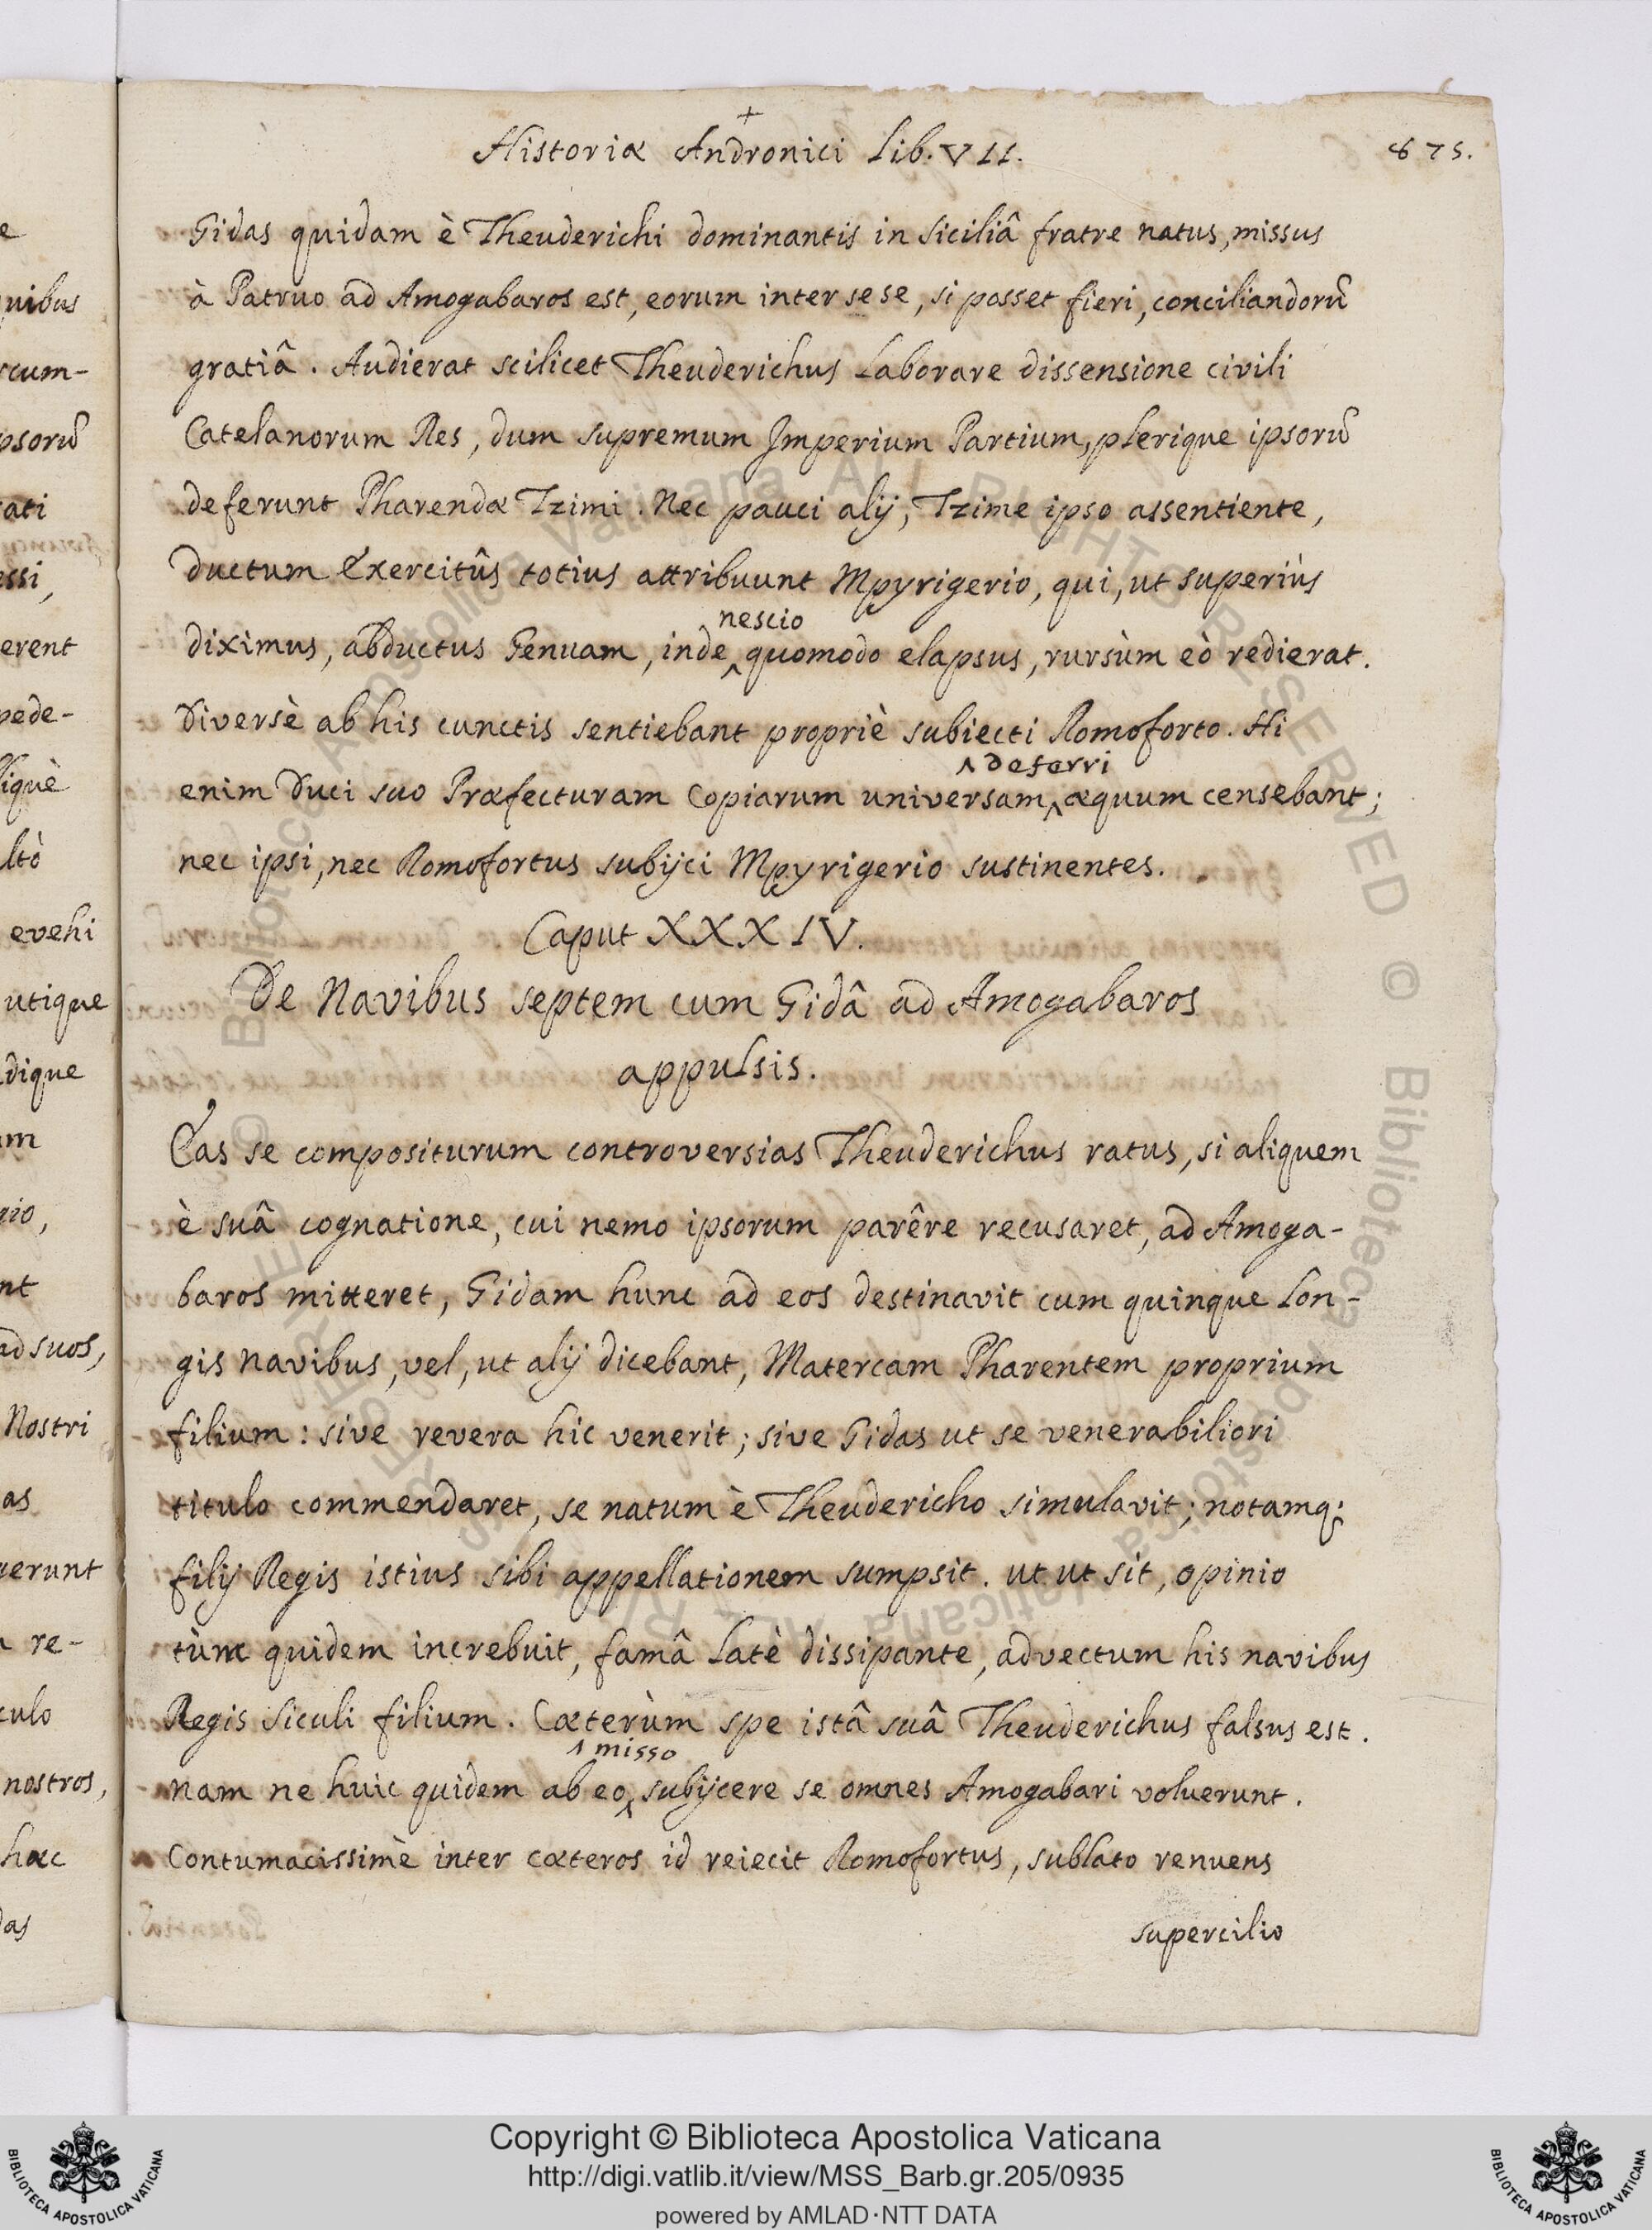 +
Historiæ Andronici Lib. VII.
875.
Gidas quidam è Theuderichi dominantis in Siciliâ fratre natus, missus
à Patruo ad Amogabaros est, eorum inter sese, si posset fieri, conciliandorũ
gratiâ. Audierat scilicet Theuderichus laborare dissensione civili
Catelanorum Res, dum supremum Imperium Partium, plerique ipsorũ
deferunt Pharendæ Tzimi. Nec pauci alij, Tzime ipso assentiente,
ductum Exercitûs totius attribuunt Mpyrigerio, qui, ut superiùs
nescio
diximus, abductus Genuam, inde ‸ quomodo elapsus, rursùm eò redierat.
Diversè ab his cunctis sentiebant propriè subiecti Romoforto. Hi
‸ deferri
enim Duci suo Præfecturam Copiarum universam ‸ æquum censebant;
nec ipsi, nec Romofortus subijci Mpyrigerio sustinentes.
Caput XXXIV.
De Navibus septem cum Gidâ ad Amogabaros
appulsis.
Eas se compositurum controversias Theuderichus ratus, si aliquem
è suâ cognatione, cui nemo ipsorum parêre recusaret, ad Amoga-
baros mitteret, Gidam hunc ad eos destinavit cum quinque lon-
gis navibus, vel, ut alij dicebant, Matercam Pharentem proprium
filium: sive revera hic venerit; sive Gidas ut se venerabiliori
titulo commendaret, se natum è Theudericho simulavit; notamq;
filij Regis istius sibi appellationem sumpsit. ut ut sit, opinio
tùnc quidem increbuit, famâ latè dissipante, advectum his navibus
Regis Siculi filium. Cæterùm spe istâ suâ Theuderichus falsus est.
‸ misso
nam ne huic quidem ab eo ‸ subijcere se omnes Amogabari voluerunt.
Contumacissimè inter cæteros id reiecit Romofortus, sublato renuens
supercilio
e
uibus
rcum-
psorũ
ati
essi,
erent
pede-
liquè
ltò
evehi
utique
dique
um
gio,
nt
ad suos,
Nostri
as
uerunt
re-
culo
nostros,
hæc
das
© Biblioteca Apostolica Vaticana ALL RIGHTS RESERVED © Biblioteca Apostolica Vaticana ALL RIGHTS RESERVED
Copyright © Biblioteca Apostolica Vaticana
http://digi.vatlib.it/view/MSS_Barb.gr.205/0935
powered by AMLAD·NTT DATA
BIBLIOTECA APOSTOLICA VATICANA
BIBLIOTECA APOSTOLICA VATICANA